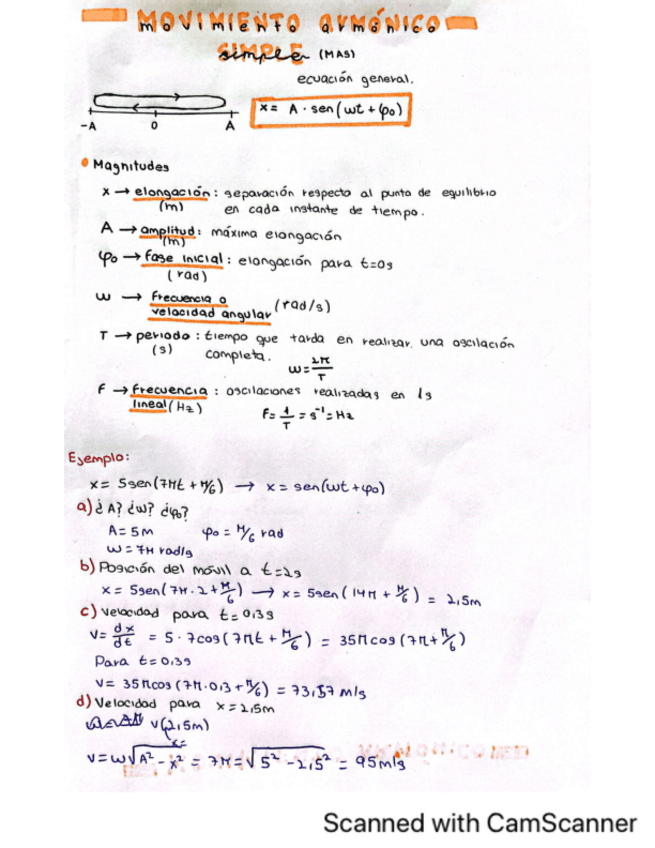 MOVIMIENTO armónico
SIMPLE (MAS)
ecuación general.
x = A · sen(ωt + φ₀)
-A 0 A
Magnitudes
x → elongación: separación respecto al punto de equilibrio
(m) en cada instante de tiempo.
A → amplitud: máxima elongación
(m)
φ₀ → fase inicial: elongación para t=0s
(rad)
ω → Frecuencia o (rad/s)
velocidad angular
T → periodo: tiempo que tarda en realizar una oscilación
(s) completa. ω = 2π/T
F → frecuencia: oscilaciones realizadas en 1s
lineal (Hz) F = 1/T = s⁻¹ = Hz
Ejemplo:
x = 5sen(7πt + π/6) → x = sen(ωt + φ₀)
a) ¿A? ¿ω? ¿φ₀?
A = 5m φ₀ = π/6 rad
ω = 7π rad/s
b) Posición del móvil a t=2s
x = 5sen(7π·2 + π/6) → x = 5sen(14π + π/6) = 2,5m
c) velocidad para t=0,3s
v = dx/dt = 5·7cos(7πt + π/6) = 35πcos(7π + π/6)
Para t=0,3s
v = 35πcos(7π·0,3 + π/6) = 73,57 m/s
d) Velocidad para x=2,5m
v(2,5m)
x=
v = ω√A² - x² = 7π = √5² - 2,5² = 95m/s
Scanned with CamScanner